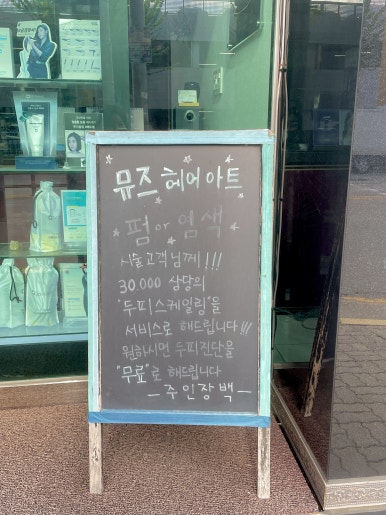 뮤즈 헤어아트
펌 or 염색
시술 고객님께!!!
30.000 상당의
"두피스케일링"을
서비스로 해드립니다!!!
원하시면 두피진단을
"무료"로 해드립니다
-주인장백-